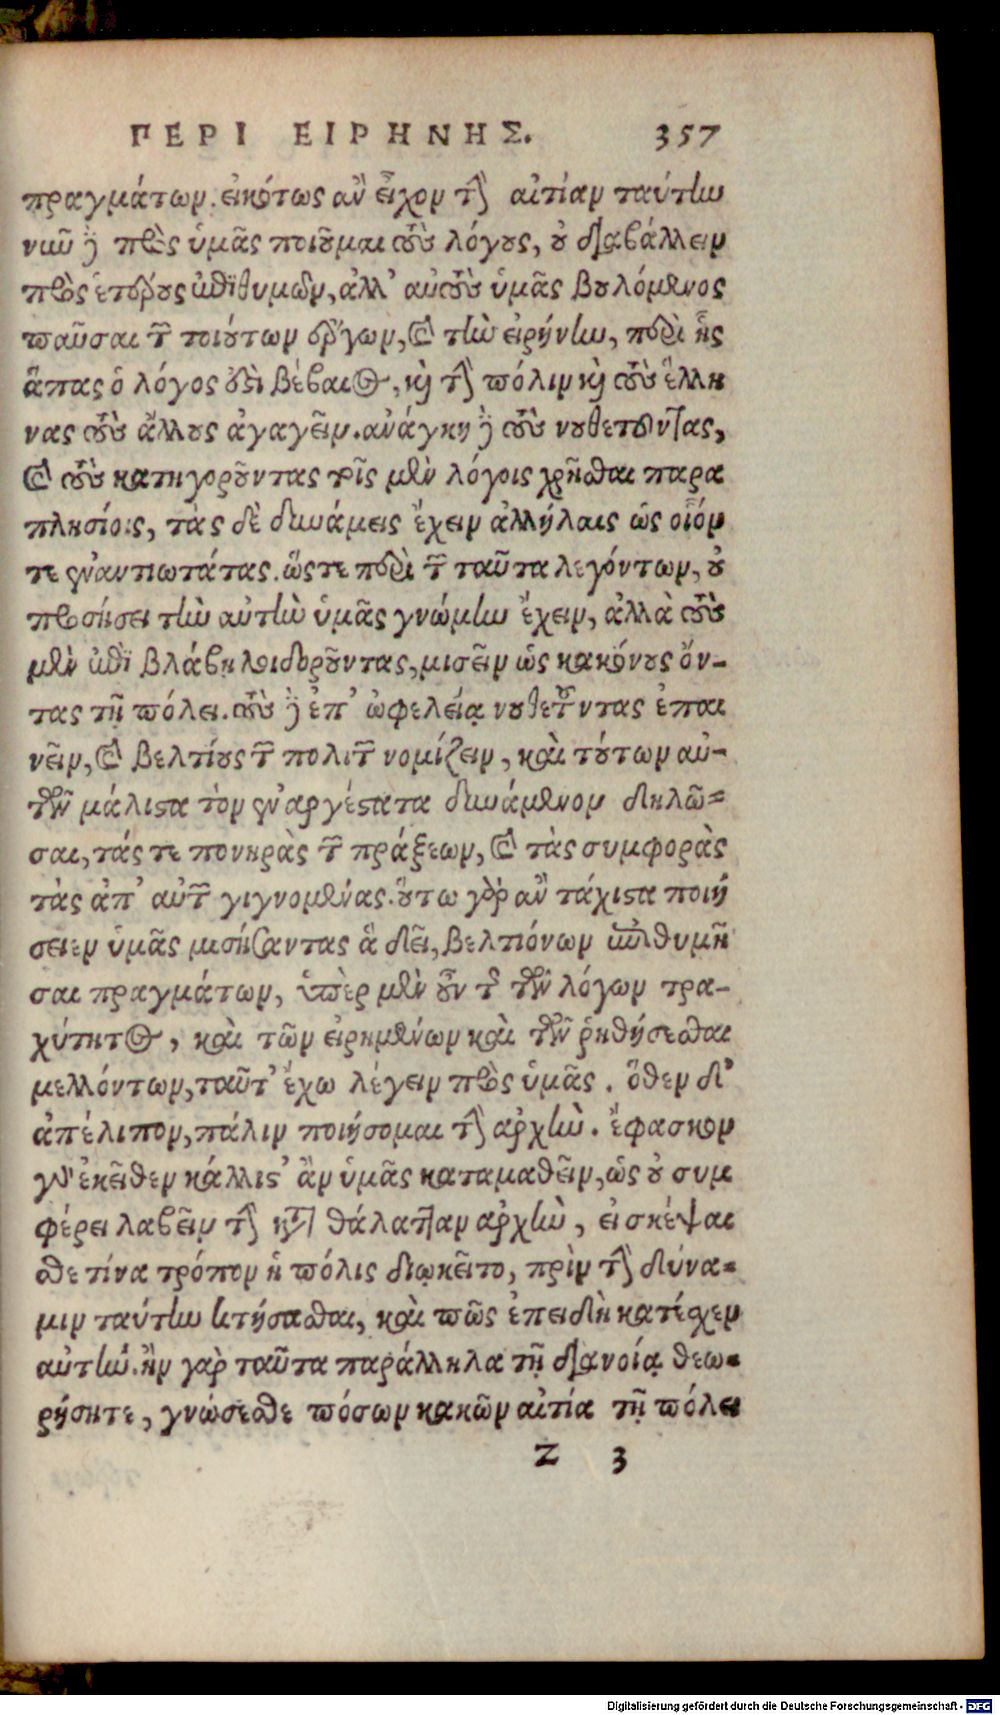 ΠΕΡΙ ΕΙΡΗΝΗΣ. 357
πραγμάτων. εἰκότως ἂν εἶχον τὴν αἰτίαν ταύτην
νιῦ ἢ πρὸς ὑμᾶς ποιοῦμαι τοὺς λόγους, οὐ διαβάλλειν
πρὸς ἑτέρους ἐπιθυμῶν, ἀλλ' αὐτοὺς ὑμᾶς βουλόμενος
παῦσαι τῶν τοιούτων ἔργων, καὶ τὴν εἰρήνην, περὶ ἧς
ἅπας ὁ λόγος ἐστὶ βέβαιον, καὶ τὴν πόλιν καὶ τοὺς ἕλλη
νας τοὺς ἄλλους ἀγαγεῖν. ἀνάγκη δὲ τοὺς νουθετοῦντας,
καὶ τοὺς κατηγοροῦντας τοῖς μὲν λόγοις χρῆσθαι παρα
πλησίοις, τὰς δὲ δυνάμεις ἔχειν ἀλλήλαις ὡς οἷόν
τε ἐναντιωτάτας. ὥστε περὶ τῶν ταῦτα λεγόντων, οὐ
προσήσει τὴν αὐτὴν ὑμᾶς γνώμην ἔχειν, ἀλλὰ τοὺς
μὲν ἐπὶ βλάβῃ λοιδοροῦντας, μισεῖν ὡς κακόνους ὄν-
τας τῇ πόλει. τοὺς δὲ ἐπ' ὠφελείᾳ νουθετοῦντας ἐπαι
νεῖν, καὶ βελτίους τῶν πολιτῶν νομίζειν, καὶ τούτων αὐ-
τῶν μάλιστα τὸν ἐναργέστατα δυνάμενον δηλῶ-
σαι, τάς τε πονηρὰς τῶν πράξεων, καὶ τὰς συμφορὰς
τὰς ἀπ' αὐτῶν γιγνομένας. οὕτω γὰρ ἂν τάχιστα ποιή
σειεν ὑμᾶς μισήσαντας ἃ δεῖ, βελτιόνων ἐπιθυμῆ
σαι πραγμάτων, ὑπὲρ μὲν οὖν τῆς τῶν λόγων τρα-
χύτητος, καὶ τῶν εἰρημένων καὶ τῶν ῥηθήσεσθαι
μελλόντων, ταῦτ' ἔχω λέγειν πρὸς ὑμᾶς. ὅθεν δ'
ἀπέλιπον, πάλιν ποιήσομαι τὴν ἀρχήν. ἔφασκον
γὰρ ἐκεῖθεν κάλλιστ' ἂν ὑμᾶς καταμαθεῖν, ὡς οὐ συμ
φέρει λαβεῖν τὴν κατὰ θάλατταν ἀρχὴν, εἰ σκέψαι
σθε τίνα τρόπον ἡ πόλις διῳκεῖτο, πρὶν τὴν δύνα-
μιν ταύτην κτήσασθαι, καὶ πῶς ἐπειδὴ κατέσχεν
αὐτήν. ἢν γὰρ ταῦτα παράλληλα τῇ διανοίᾳ θεω-
ρήσητε, γνώσεσθε πόσων κακῶν αἰτία τῇ πόλει
Z 3
Digitalisierung gefördert durch die Deutsche Forschungsgemeinschaft - DFG